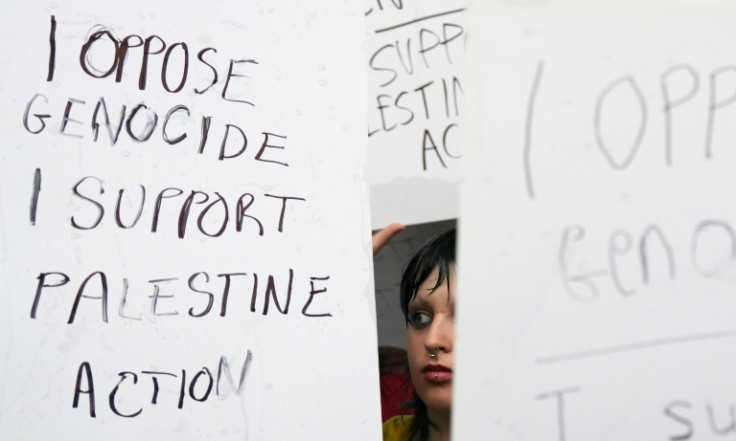 I OPPOSE
GENOCIDE
I SUPPORT
PALESTINE
ACTION
SUPP
ESTIN
AC
I OPP
GENO
I SU